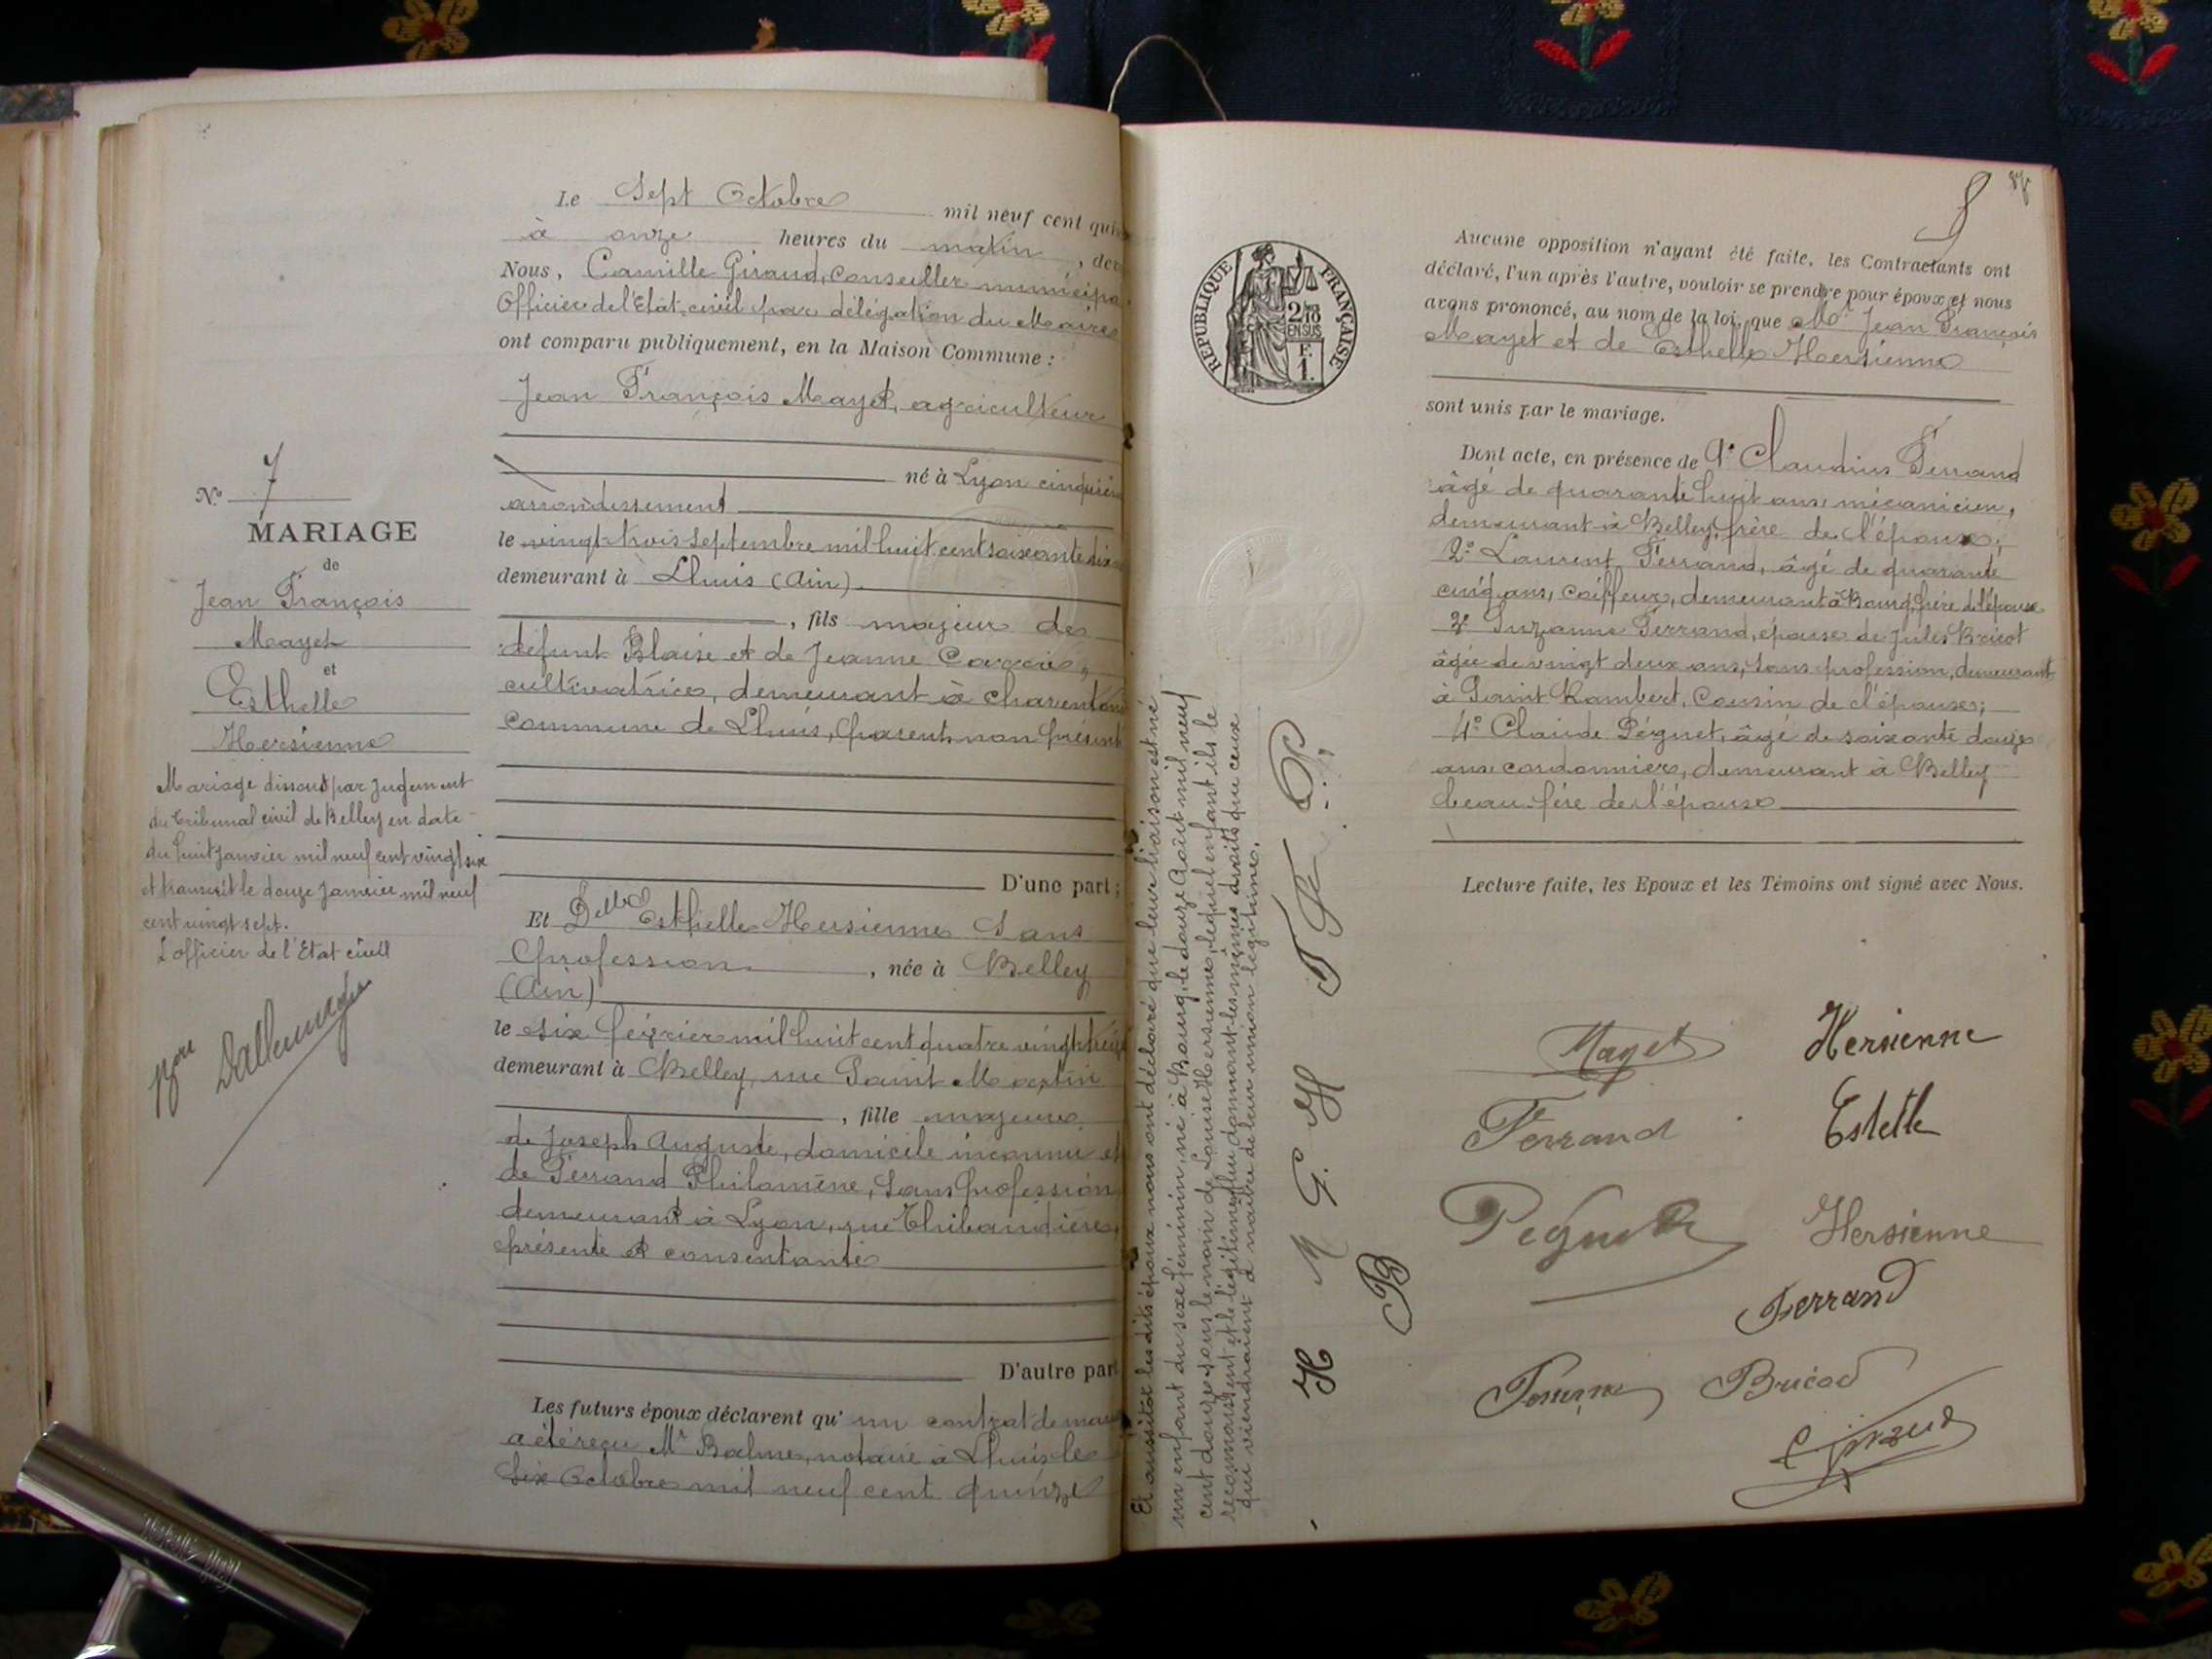 Le Sept Octobre mil neuf cent
à onze heures du matin,
Nous, Camille Giraud, Conseiller municipa
Officier de l'Etat civil par délégation du Maire
ont comparu publiquement, en la Maison Commune :
Jean François Mayet, agriculteur
né à Lyon cinquièm
arrondissement
le vingt-trois septembre mil huit cent soixante dix
demeurant à Lhuis (Ain)
, fils majeur de
défunt Blaise et de Jeanne
cultivatrice, demeurant à
Commune de Lhuis, non présent
D'une part ;
Et Delle Esthelle Hersienne Sans
profession, née à Belley
(Ain)
le six février mil huit cent quatre vingt
demeurant à Belley, rue Saint Martin
, fille majeure
de Joseph Auguste, domicile inconnu et
de Ferrand Philomène, sans profession
demeurant à Lyon, rue Thibaudière,
présente et consentante
D'autre part
Les futurs époux déclarent qu'un contrat de
a été reçu Mr Balme, notaire à Lhuis le
six Octobre mil neuf cent quinze
N° 7
MARIAGE
de
Jean François
Mayet
et
Esthelle
Hersienne
Mariage dissout par jugement
du tribunal civil de Belley en date
du huit janvier mil neuf cent vingt six
et transcrit le douze janvier mil neuf
cent vingt sept.
L'officier de l'Etat civil
Dallemagne
Et aussitôt les dits époux nous ont déclaré que leur liaison est né
un enfant du sexe féminin, né à Bourg, le douze Août mil neuf
cent douze sous le nom de Louise Hersienne, lequel enfant ils le
reconnaissent et le légitiment lui donnant les mêmes droits que ceux
qui viendraient à naître de leur union légitime.
H M G H
B
REPUBLIQUE FRANÇAISE
2/10
EN SUS
F.
1.
Aucune opposition n'ayant été faite, les Contractants ont
déclaré, l'un après l'autre, vouloir se prendre pour époux et nous
avons prononcé, au nom de la loi, que Mr Jean François
Mayet et de Esthelle Hersienne
sont unis par le mariage.
Dont acte, en présence de 1° Claudius Ferrand
âgé de quarante huit ans, mécanicien,
demeurant à Belley, frère de l'épouse;
2° Laurent Ferrand, âgé de quarante
cinq ans, coiffeur, demeurant à Bourg, frère de l'épouse
3° Suzanne Ferrand, épouse de Jules Bricot
âgée de vingt deux ans, sans profession, demeurant
à Saint Rambert, Cousin de l'épouse;
4° Claude Péguet, âgé de soixante douze
ans, cordonnier, demeurant à Belley
beau-père de l'épouse
Lecture faite, les Epoux et les Témoins ont signé avec Nous.
Mayet Hersienne
Ferrand Estelle
Peguet Hersienne
Ferrand
Bricod
C Giraud